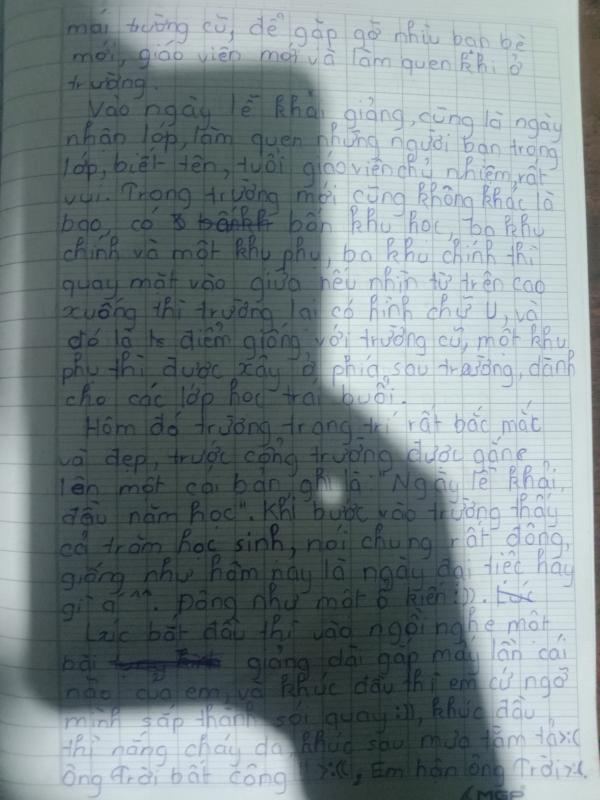 mái trường cũ, để gặp gỡ nhìu bạn bè
mới, giáo viên mới và làm quen khi ở
trường.
Vào ngày lễ khải giảng, cũng là ngày
nhận lớp, làm quen những người bạn trong
lớp, biết tên, tuổi giáo viên chủ nhiệm, rất
vui. Trong trường mới cũng không khác là
bao, có bốn khu học, ba khu
chính và một khu phụ, ba khu chính thì
quay mặt vào giữa nếu nhìn từ trên cao
xuống thì trường lại có hình chữ U, và
đó là điểm giống với trường cũ, một khu
phụ thì được xây ở phía sau trường, dành
cho các lớp học trái buổi.
Hôm đó trường trang trí rất bắc mắt
và đẹp, trước cổng trường được gắng
lên một cái bản ghi là: "Ngày lễ khải
đầu năm học". Khi bước vào trường thấy
cả trăm học sinh, nói chung rất đông,
giống như hôm nay là ngày đại tiệc hay
gì á ^^. Đông như một ổ kiến :)).
Lúc bắt đầu thì vào ngồi nghe một
bài giảng dài gấp mấy lần cái
não của em, và khúc đầu thì em cứ ngỡ
mình sắp thành sói quay :)), khúc đầu
thì nắng cháy da, khúc sau mưa tằm tả >:(
ông Trời bất công !! >:((, Em hận ông Trời >:(